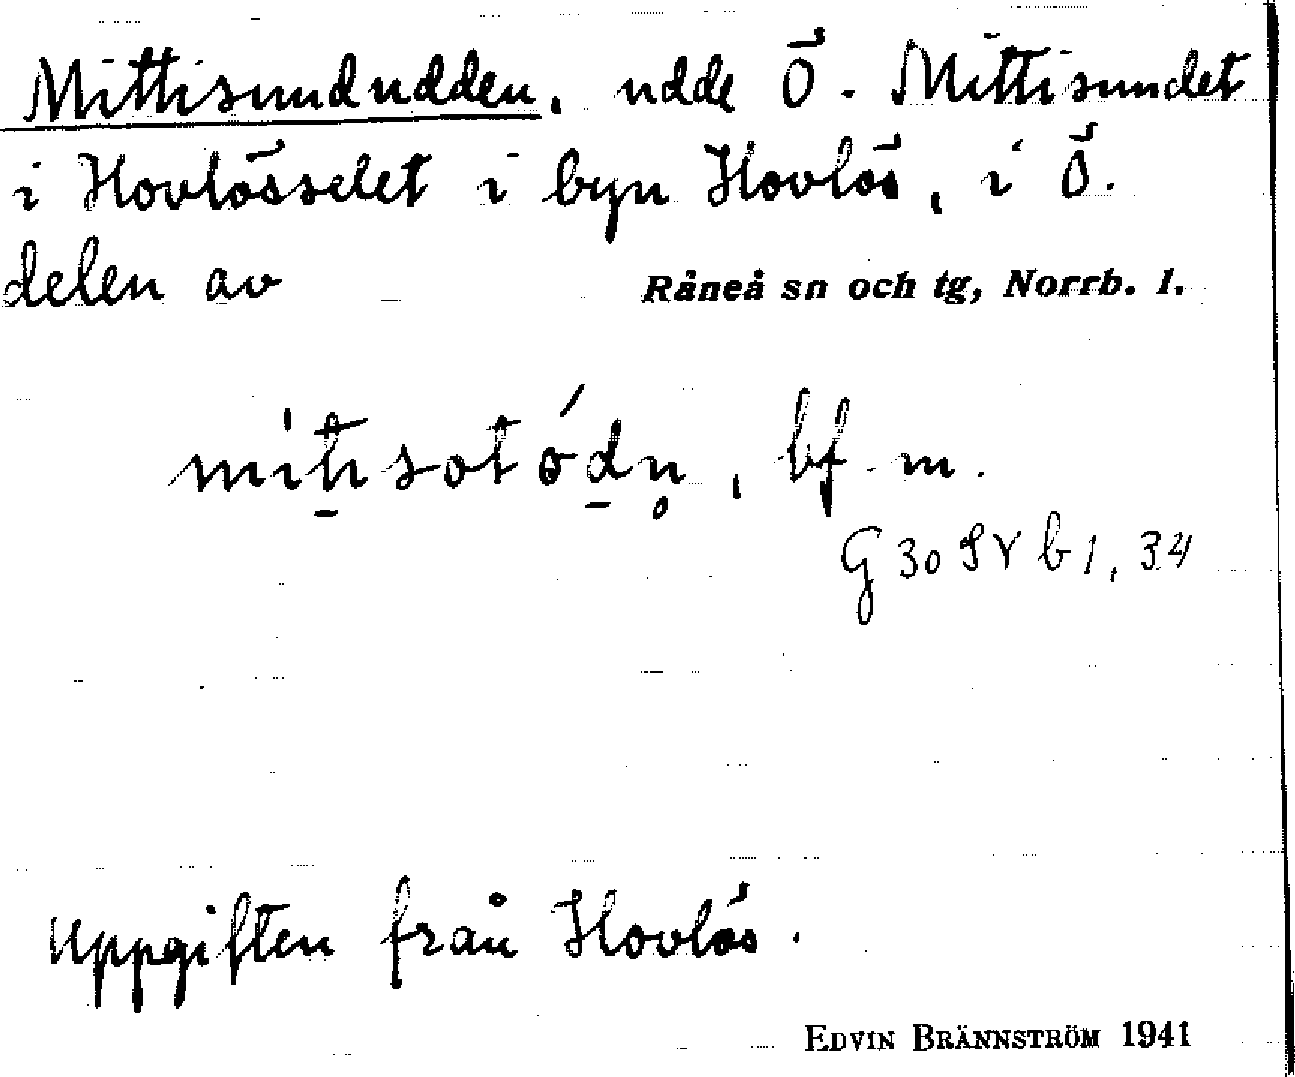 Mittisundudden, udde Ö. Mittisundet
i Hovlösselet i byn Hovlös, i Ö.
delen av Råneå sn och tg, Norrb. l.
bf. m.
G 30 SV b 1, 34
Uppgiften från Hovlös.
EDVIN BRÄNNSTRÖM 1941